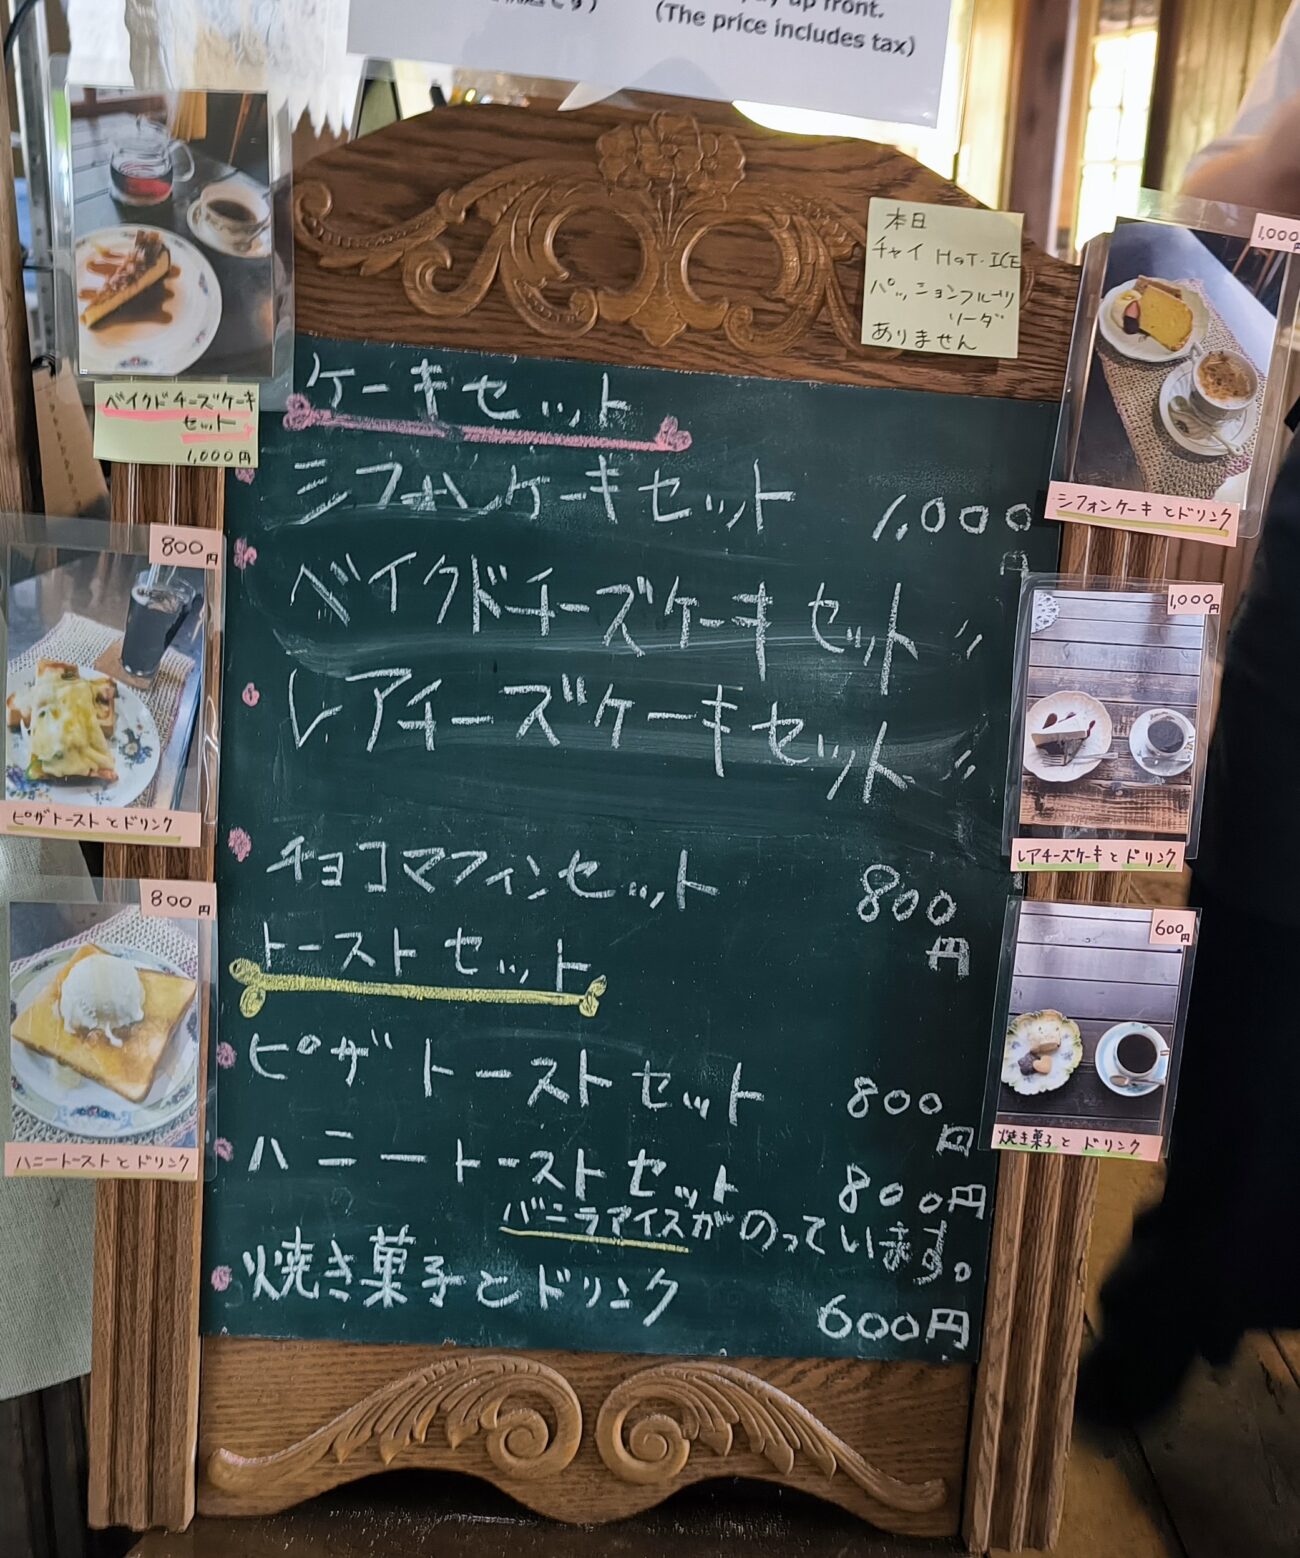 up front.
(The price includes tax)
本日
チャイ HOT・ICE
パッションフルーツ
ソーダ
ありません
ケーキセット
シフォンケーキセット 1,000円
ベイクドチーズケーキセット 〃
レアチーズケーキセット 〃
チョコマフィンセット 800円
トーストセット
ピザトーストセット 800円
ハニートーストセット 800円
バニラアイスがのっています。
焼き菓子とドリンク 600円
ベイクドチーズケーキ
セット
1,000円
800円
ピザトーストとドリンク
800円
ハニートーストとドリンク
1,000円
シフォンケーキとドリンク
1,000円
レアチーズケーキとドリンク
600円
焼き菓子とドリンク